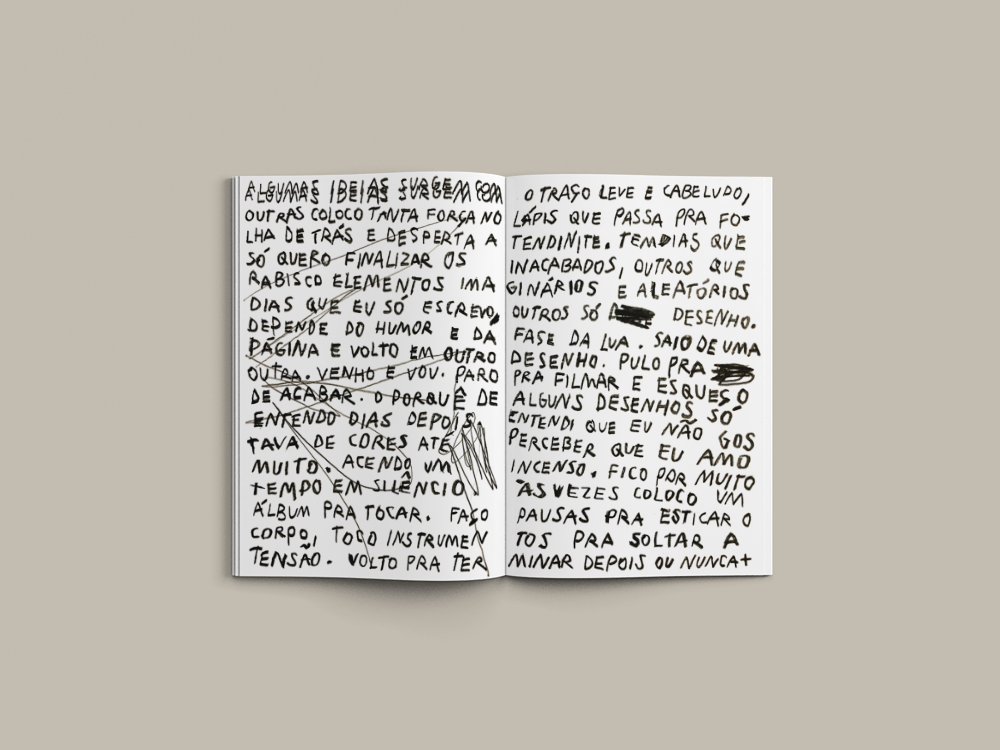 ALGUMAS IDEIAS SURGEM COM O TRAÇO LEVE E CABELUDO,
OUTRAS COLOCO TANTA FORÇA NO LÁPIS QUE PASSA PRA FO-
LHA DE TRÁS E DESPERTA A TENDINITE. TEM DIAS QUE
SÓ QUERO FINALIZAR OS INACABADOS, OUTROS QUE
RABISCO ELEMENTOS IMA GINÁRIOS E ALEATÓRIOS
DIAS QUE EU SÓ ESCREVO, OUTROS SÓ DESENHO.
DEPENDE DO HUMOR E DA FASE DA LUA. SAIO DE UMA
PÁGINA E VOLTO EM OUTRO DESENHO. PULO PRA
OUTRA. VENHO E VOU. PARO PRA FILMAR E ESQUEÇO
DE ACABAR. O PORQUÊ DE ALGUNS DESENHOS SÓ
ENTENDO DIAS DEPOIS. ENTENDI QUE EU NÃO GOS
TAVA DE CORES ATÉ PERCEBER QUE EU AMO
MUITO. ACENDO UM INCENSO. FICO POR MUITO
TEMPO EM SILÊNCIO. ÀS VEZES COLOCO UM
ÁLBUM PRA TOCAR. FAÇO PAUSAS PRA ESTICAR O
CORPO, TOCO INSTRUMEN TOS PRA SOLTAR A
TENSÃO. VOLTO PRA TER MINAR DEPOIS OU NUNCA+